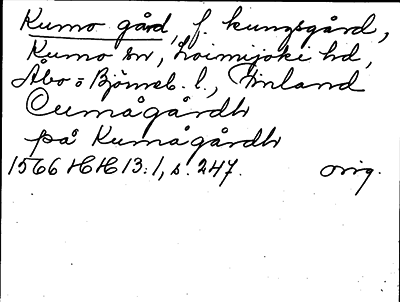 Kumo gård, f. kungsgård,
Kumo sn, Loimijoki hd,
Åbo = Björneb. l., Finland
Cumågårdh
på Kumågårdh
1566 HH 13:1, s. 247. orig.